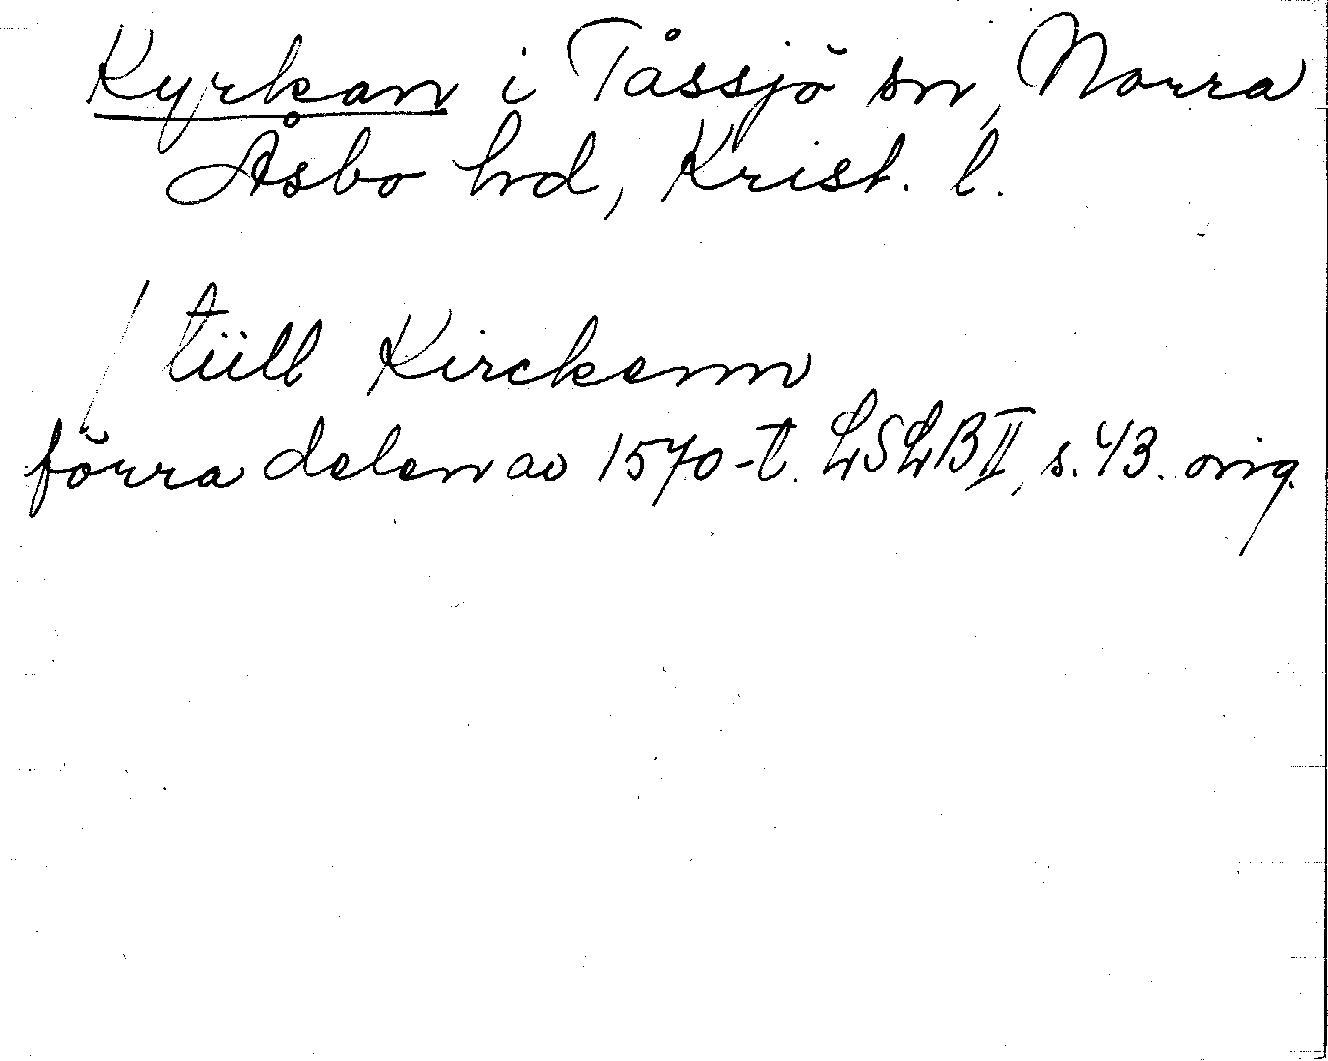 Kyrkan i Tåssjö sn, Norra
Åsbo hd, Krist. l.
/ tiill Kirckenn
förra delen av 1570-t. LSLB II, s. 43. orig.